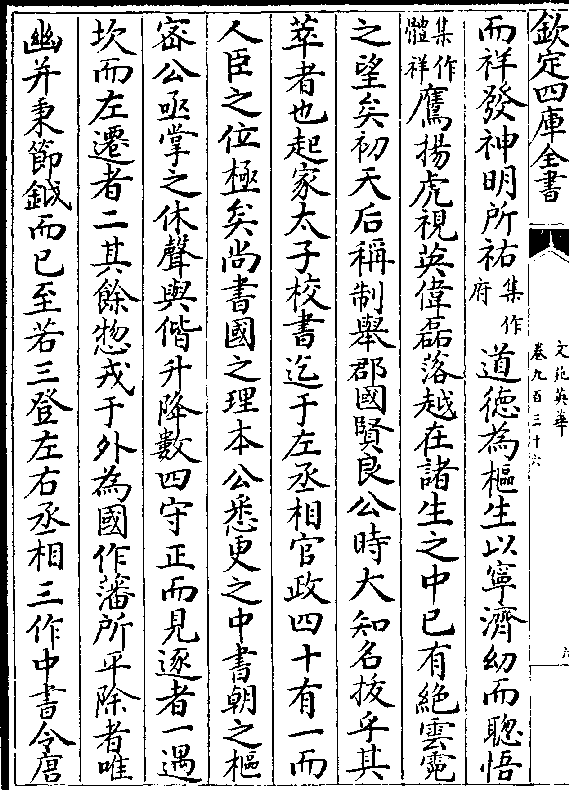 欽定四庫全書
文苑英華
卷九百三十六
而祥發神明所祐集作府道德為樞生以寧濟幼而聰悟
集作體祥鷹揚虎視英偉磊落越在諸生之中已有絕雲霓
之望矣初天后稱制舉郡國賢良公時大知名拔乎其
萃者也起家太子校書迄于左丞相官政四十有一而
人臣之位極矣尚書國之理本公悉更之中書朝之樞
密公亟掌之休聲與偕升降數四守正而見逐者一遇
坎而左遷者二其餘惣戎于外為國作藩所平除者唯
幽并秉節鉞而已至若三登左右丞相三作中書令唐